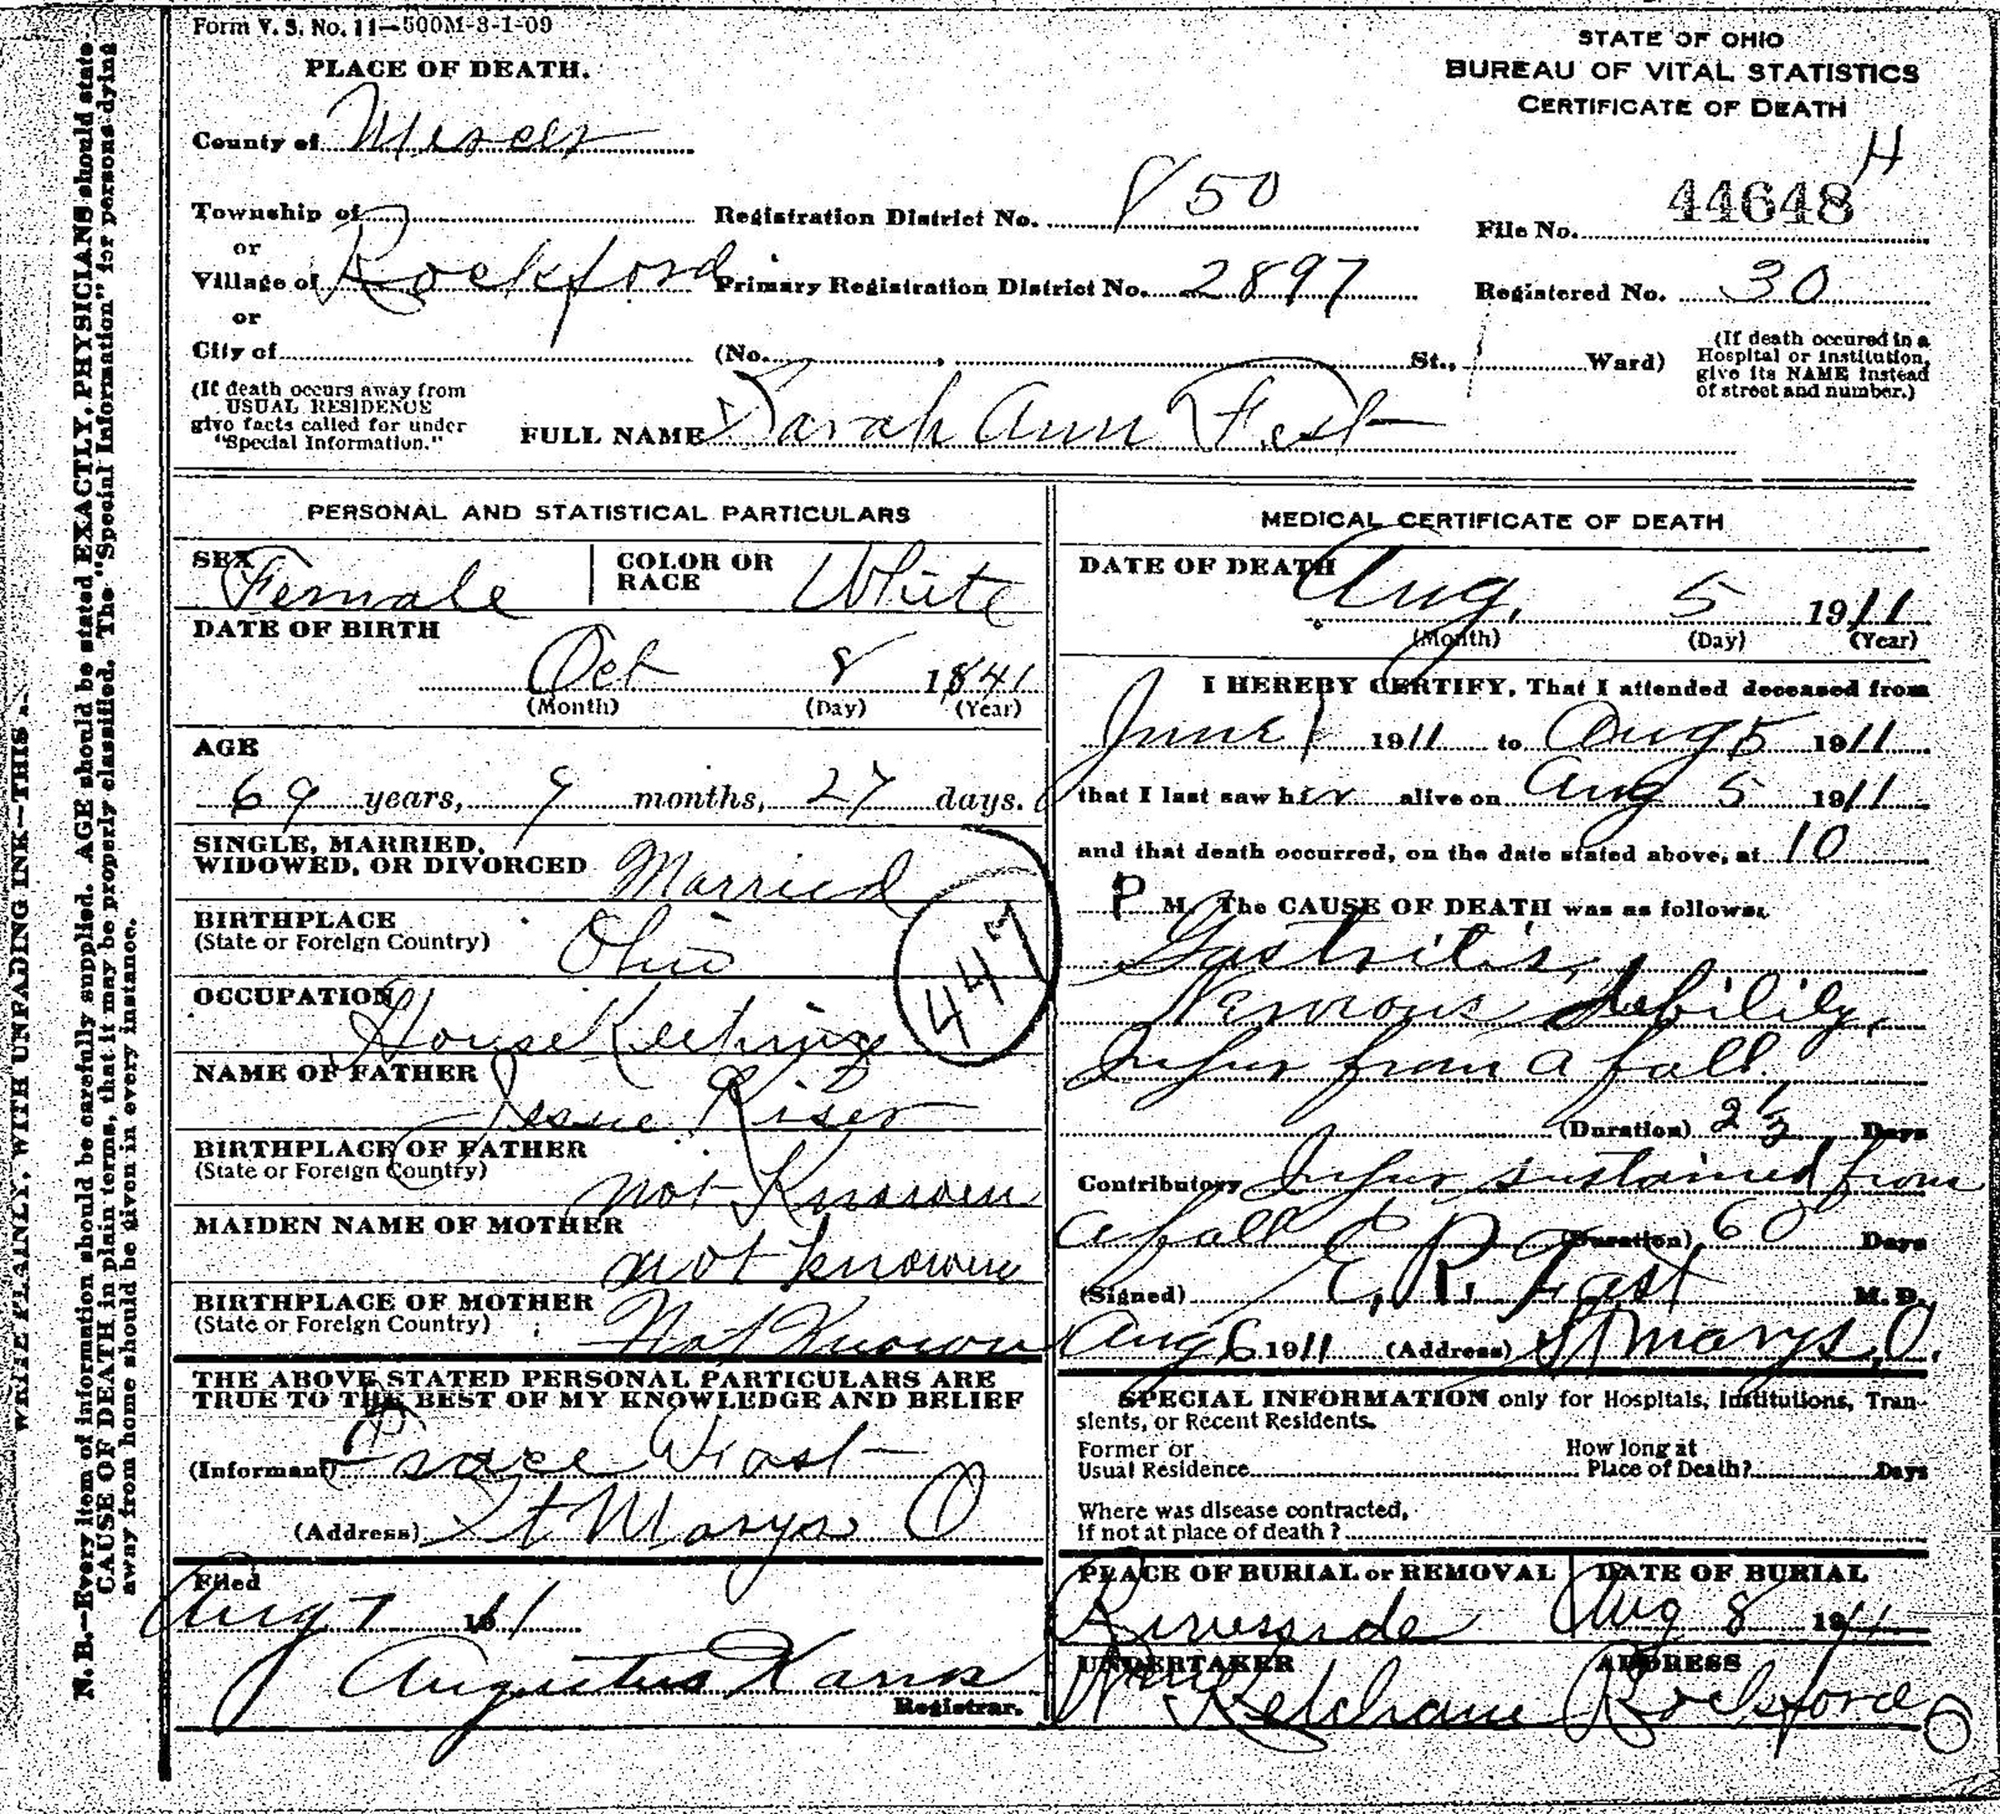 Form V. S. No. 11—500M-3-1-09
PLACE OF DEATH.
STATE OF OHIO
BUREAU OF VITAL STATISTICS
CERTIFICATE OF DEATH
County of Mercer
H
Township of Registration District No. 850 File No. 44648
or
Village of Rockford Primary Registration District No. 2897 Registered No. 30
or
City of (No. , St., Ward) (If death occured in a Hospital or Institution, give its NAME instead of street and number.)
(If death occurs away from USUAL RESIDENCE give facts called for under "Special Information.")
FULL NAME Sarah Ann Fast
PERSONAL AND STATISTICAL PARTICULARS
SEX Female COLOR OR RACE White
DATE OF BIRTH
Oct 8 1841
(Month) (Day) (Year)
AGE
69 years, 9 months, 27 days.
SINGLE, MARRIED,
WIDOWED, OR DIVORCED Married
BIRTHPLACE
(State or Foreign Country) Ohio
447
OCCUPATION
House Keeping
NAME OF FATHER
Jessie Kiser
BIRTHPLACE OF FATHER
(State or Foreign Country) not Known
MAIDEN NAME OF MOTHER
not known
BIRTHPLACE OF MOTHER
(State or Foreign Country) Not Known
THE ABOVE STATED PERSONAL PARTICULARS ARE
TRUE TO THE BEST OF MY KNOWLEDGE AND BELIEF
(Informant) Fast
(Address) St Marys O
Filed
Aug 7 1911
Augustus
Registrar.
MEDICAL CERTIFICATE OF DEATH
DATE OF DEATH
Aug. 5 1911
(Month) (Day) (Year)
I HEREBY CERTIFY, That I attended deceased from
June 1 1911 to Aug 5 1911
that I last saw her alive on Aug 5 1911
and that death occurred, on the date stated above, at 10
P M. The CAUSE OF DEATH was as follows:
Gastritis,
Nervous debility,
Injury from a fall.
(Duration) Days
Contributory Injury sustained from
a fall (Duration) 60 Days
(Signed) E. R. Fast M. D.
Aug 6 1911 (Address) St Marys, O.
SPECIAL INFORMATION only for Hospitals, Institutions, Tran-
sients, or Recent Residents.
Former or
Usual Residence
How long at
Place of Death? Days
Where was disease contracted,
if not at place of death?
PLACE OF BURIAL or REMOVAL DATE OF BURIAL
Riverside Aug 8 1911
UNDERTAKER ADDRESS
Wm Ketcham Rockford O
WRITE PLAINLY, WITH UNFADING INK—THIS
N. B.—Every item of information should be carefully supplied. AGE should be stated EXACTLY. PHYSICIANS should state
CAUSE OF DEATH in plain terms, that it may be properly classified. The "Special Information" for persons dying
away from home should be given in every instance.